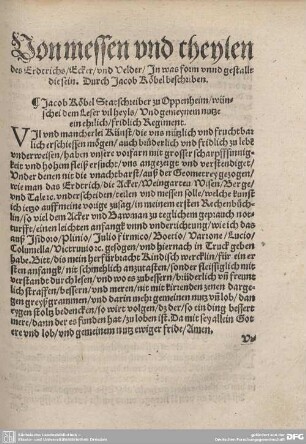 Von messen vnd theylen
des Erderichs/Ecker/vnd Velder/In was form vnnd gestallt
die sein. Durch Jacob Köbel beschriben.
¶ Jacob Köbel Statschreiber zu Oppenheim/wün-
schet dem Leser vil heyls/Vnd gemeynem nutze
ein ehrlich/fridlich Regiment.
VIl vnd mancherlei Künst/die vns nützlich vnd fruchtbar
lich erschiessen mögen/auch brüderlich vnd fridlich zu lebē
vnderweisen/haben vnsere vorfarn mit grosser scharpfsinnig-
keit vnd hohem fleiß ersucht/vns angezeygt vnd verstendiget/
Vnder denen nit die vnachtbarst/auß der Geometrey gezogen/
wie man das Erderich/die Acker/Weingartten Wisen/Berge/
vnd Tale vnderscheiden/teilen vnd messen solle/welche kunst
ich ietzo auffs meine voige zusag/in meinem ersten Rechenbüch-
lin/so viel dem Acker vnd Bawman zu teglichem gepranch not-
turfft/einen leichten anfangk vnnd vnderrichtung/wie ich das
auß Isidoro/Plinio/Julio firmico/Boecio/Varone/Lucio/
Columella/Victruuio gezogen/vnd hiernach in Truck geben
habe. Bitt/die mein herfürbracht Kindisch wercklin/für ein er
sten anfangk/nit schmehlich anzutasten/sonder fleissiglich mit
verstande durch lesen/vnd wo es zubessern/brüderlich vñ freunt
lich straffen/bessern/vnd meren/nit mit kirrenden zenen darge-
gen greyßgrammen/vnd darin mehr gemeinen nutz vñ lob/dan
eygen stoltz bedencken/so wirt volgen/dz der/so ein ding bessert
mere/dann der es funden hat/zu loben ist. Da mit sey allein Got
ere vnd lob/vnd gemeinem nutz ewiger fride/Amen.